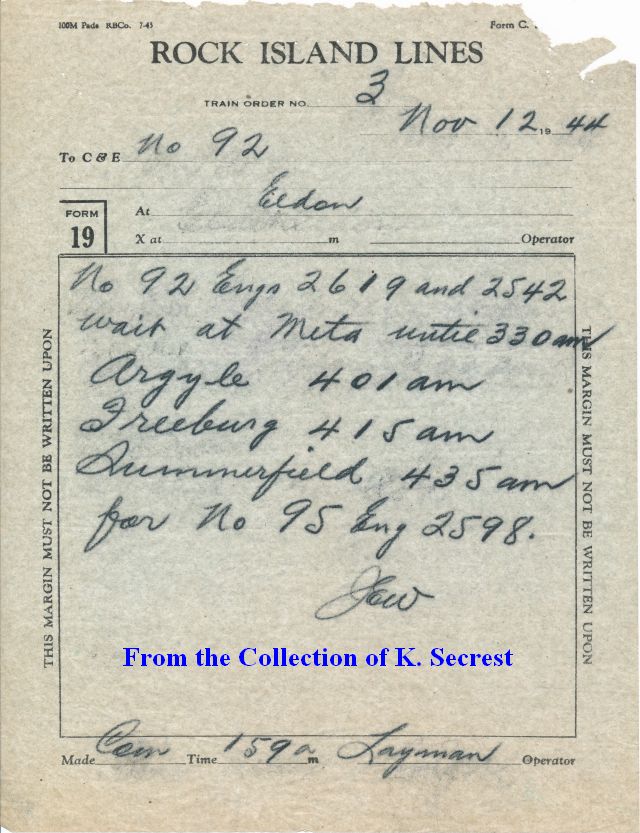 100M Pads RBCo. 7-43
Form C.
ROCK ISLAND LINES
TRAIN ORDER NO. 3
Nov 12 1944
To C & E No 92
FORM 19
At Eldon
X at m Operator
No 92 Engs 2619 and 2542
wait at Meta until 330am
Argyle 401am
Freeburg 415am
Summerfield 435am
for No 95 Eng 2598.
JEW
From the Collection of K. Secrest
Made Com Time 159a m Layman Operator
THIS MARGIN MUST NOT BE WRITTEN UPON
THIS MARGIN MUST NOT BE WRITTEN UPON